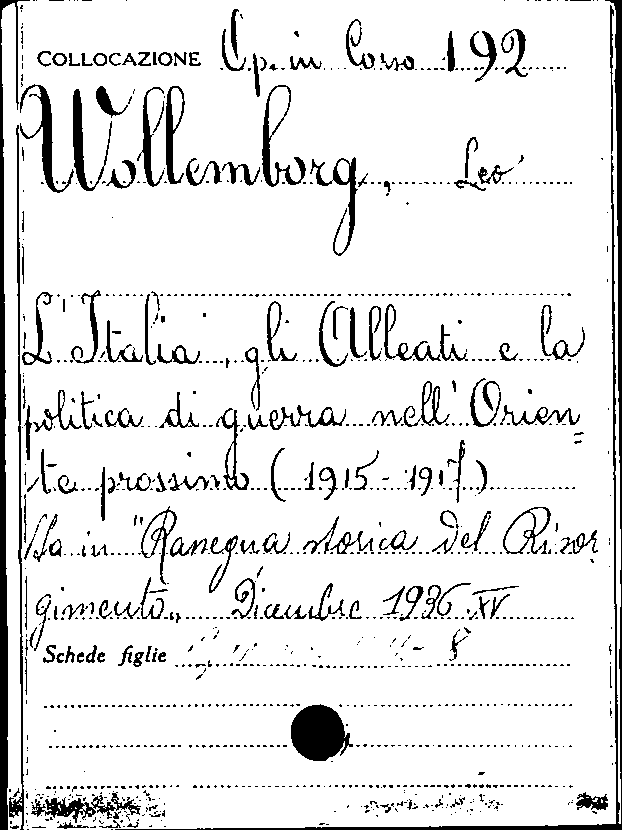 COLLOCAZIONE Op. in Corso 192
Wollemborg, Leo
L'Italia, gli Alleati e la
politica di guerra nell'Orien=
te prossimo (1915-1917)
Sta in "Rassegna storica del Risor
gimento„ Dicembre 1936.XV
Schede figlie